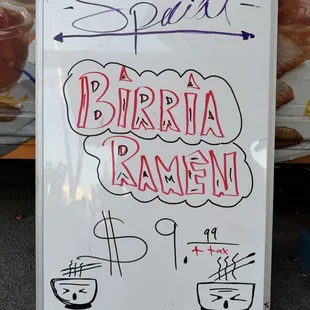 - Special -
BIRRIA
RAMEN
$9.99
+ tax